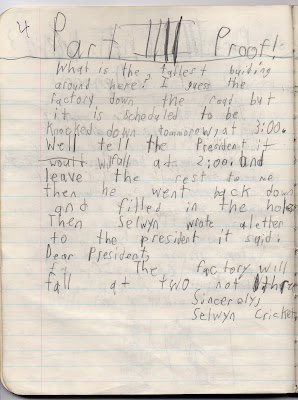 4
Part IIII Proof!
What is the tallest building
around here? I guess the
factory down the road but
it is scheduled to be
knocked down tommorow at 3:00.
Well tell the President it
will fall at 2:00. and
leave the rest to me
then he went back down
and filled in the hole
Then Selwyn wrote a letter
to the president it said.
Dear President,
The factory will
fall at two not three
Sincerely,
Selwyn Cricket